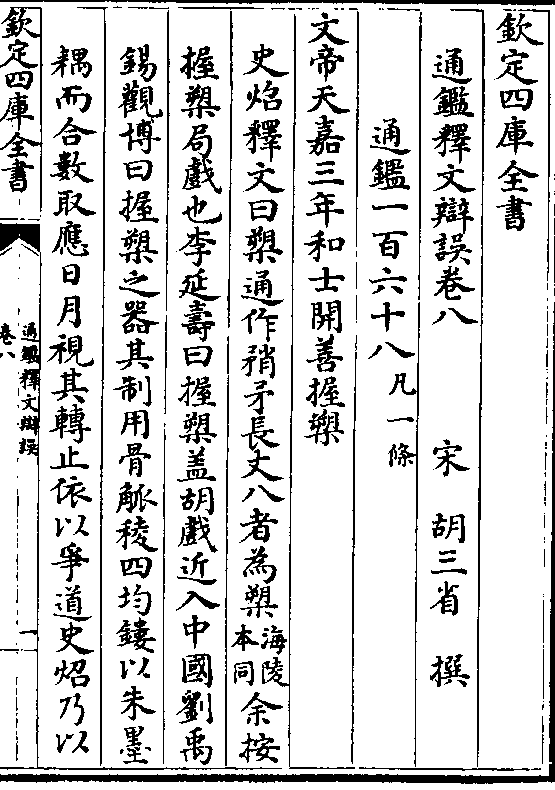 欽定四庫全書
通鑑釋文辯誤卷八
宋 胡三省 撰
通鑑一百六十八 凡一條
文帝天嘉三年和士開善握槊
史炤釋文曰槊通作矟矛長丈八者為槊海陵本同余按
握槊局戲也李延壽曰握槊盖胡戲近入中國劉禹
錫觀博曰握槊之器其制用骨觚稜四均鏤以朱墨
耦而合數取應日月視其轉止依以爭道史炤乃以
欽定四庫全書
通鑑釋文辯誤
卷八
一